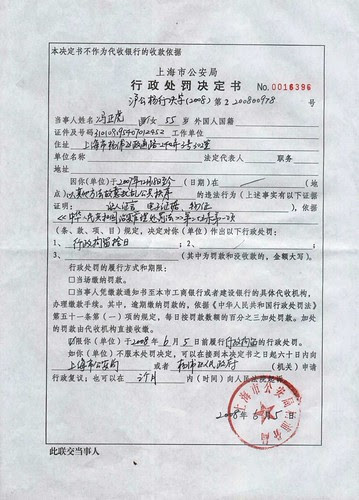 本决定书不作为代收银行的收款依据
上海市公安局
行政处罚决定书 No.0016396
沪公杨行决字(2008)第2200800978号
当事人姓名 冯正虎 男/女 55岁 外国人国籍
证件及号码 工作单位
住址 上海市杨浦区政通路240弄3号 室
单位名称 法定代表人 职务
因你(单位)于2007年12月 日至今 在
(地点) 以其他方法故意扰乱公共秩序 的违法行为(上述事实有以下证据
证明: 证人证言 电子证据 物证 ),依据
《中华人民共和国治安管理处罚法》第 条第 项
(条、款、项目)规定,决定对你(单位)作出以下行政处罚:
1、行政拘留拾日
2、
3、 (其中为罚款和没收的款,金额大写)
行政处罚的履行方式和期限:
□当场缴纳罚款。
□当事人凭缴款通知书至本市工商银行或者建设银行的具体代收机构,
办理缴款手续。其中,逾期缴纳的罚款,依据《中华人民共和国行政处罚法》
第五十一条第(一)项的规定,每日按罚款数额的百分之三加处罚款。加处
的罚款由代收机构直接收缴。
限你(单位)于2008年6月5日前履行行政拘留的行政处罚。
如你(单位)不服本处罚决定,可以在接到本决定书之日起六十日内向
上海市公安局 或者 杨浦区人民政府 (机关)申请
行政复议;也可以在 三个月 内(时间)向人民法院起诉。
上海市公安局杨浦分局
2008年6月5日
此联交当事人